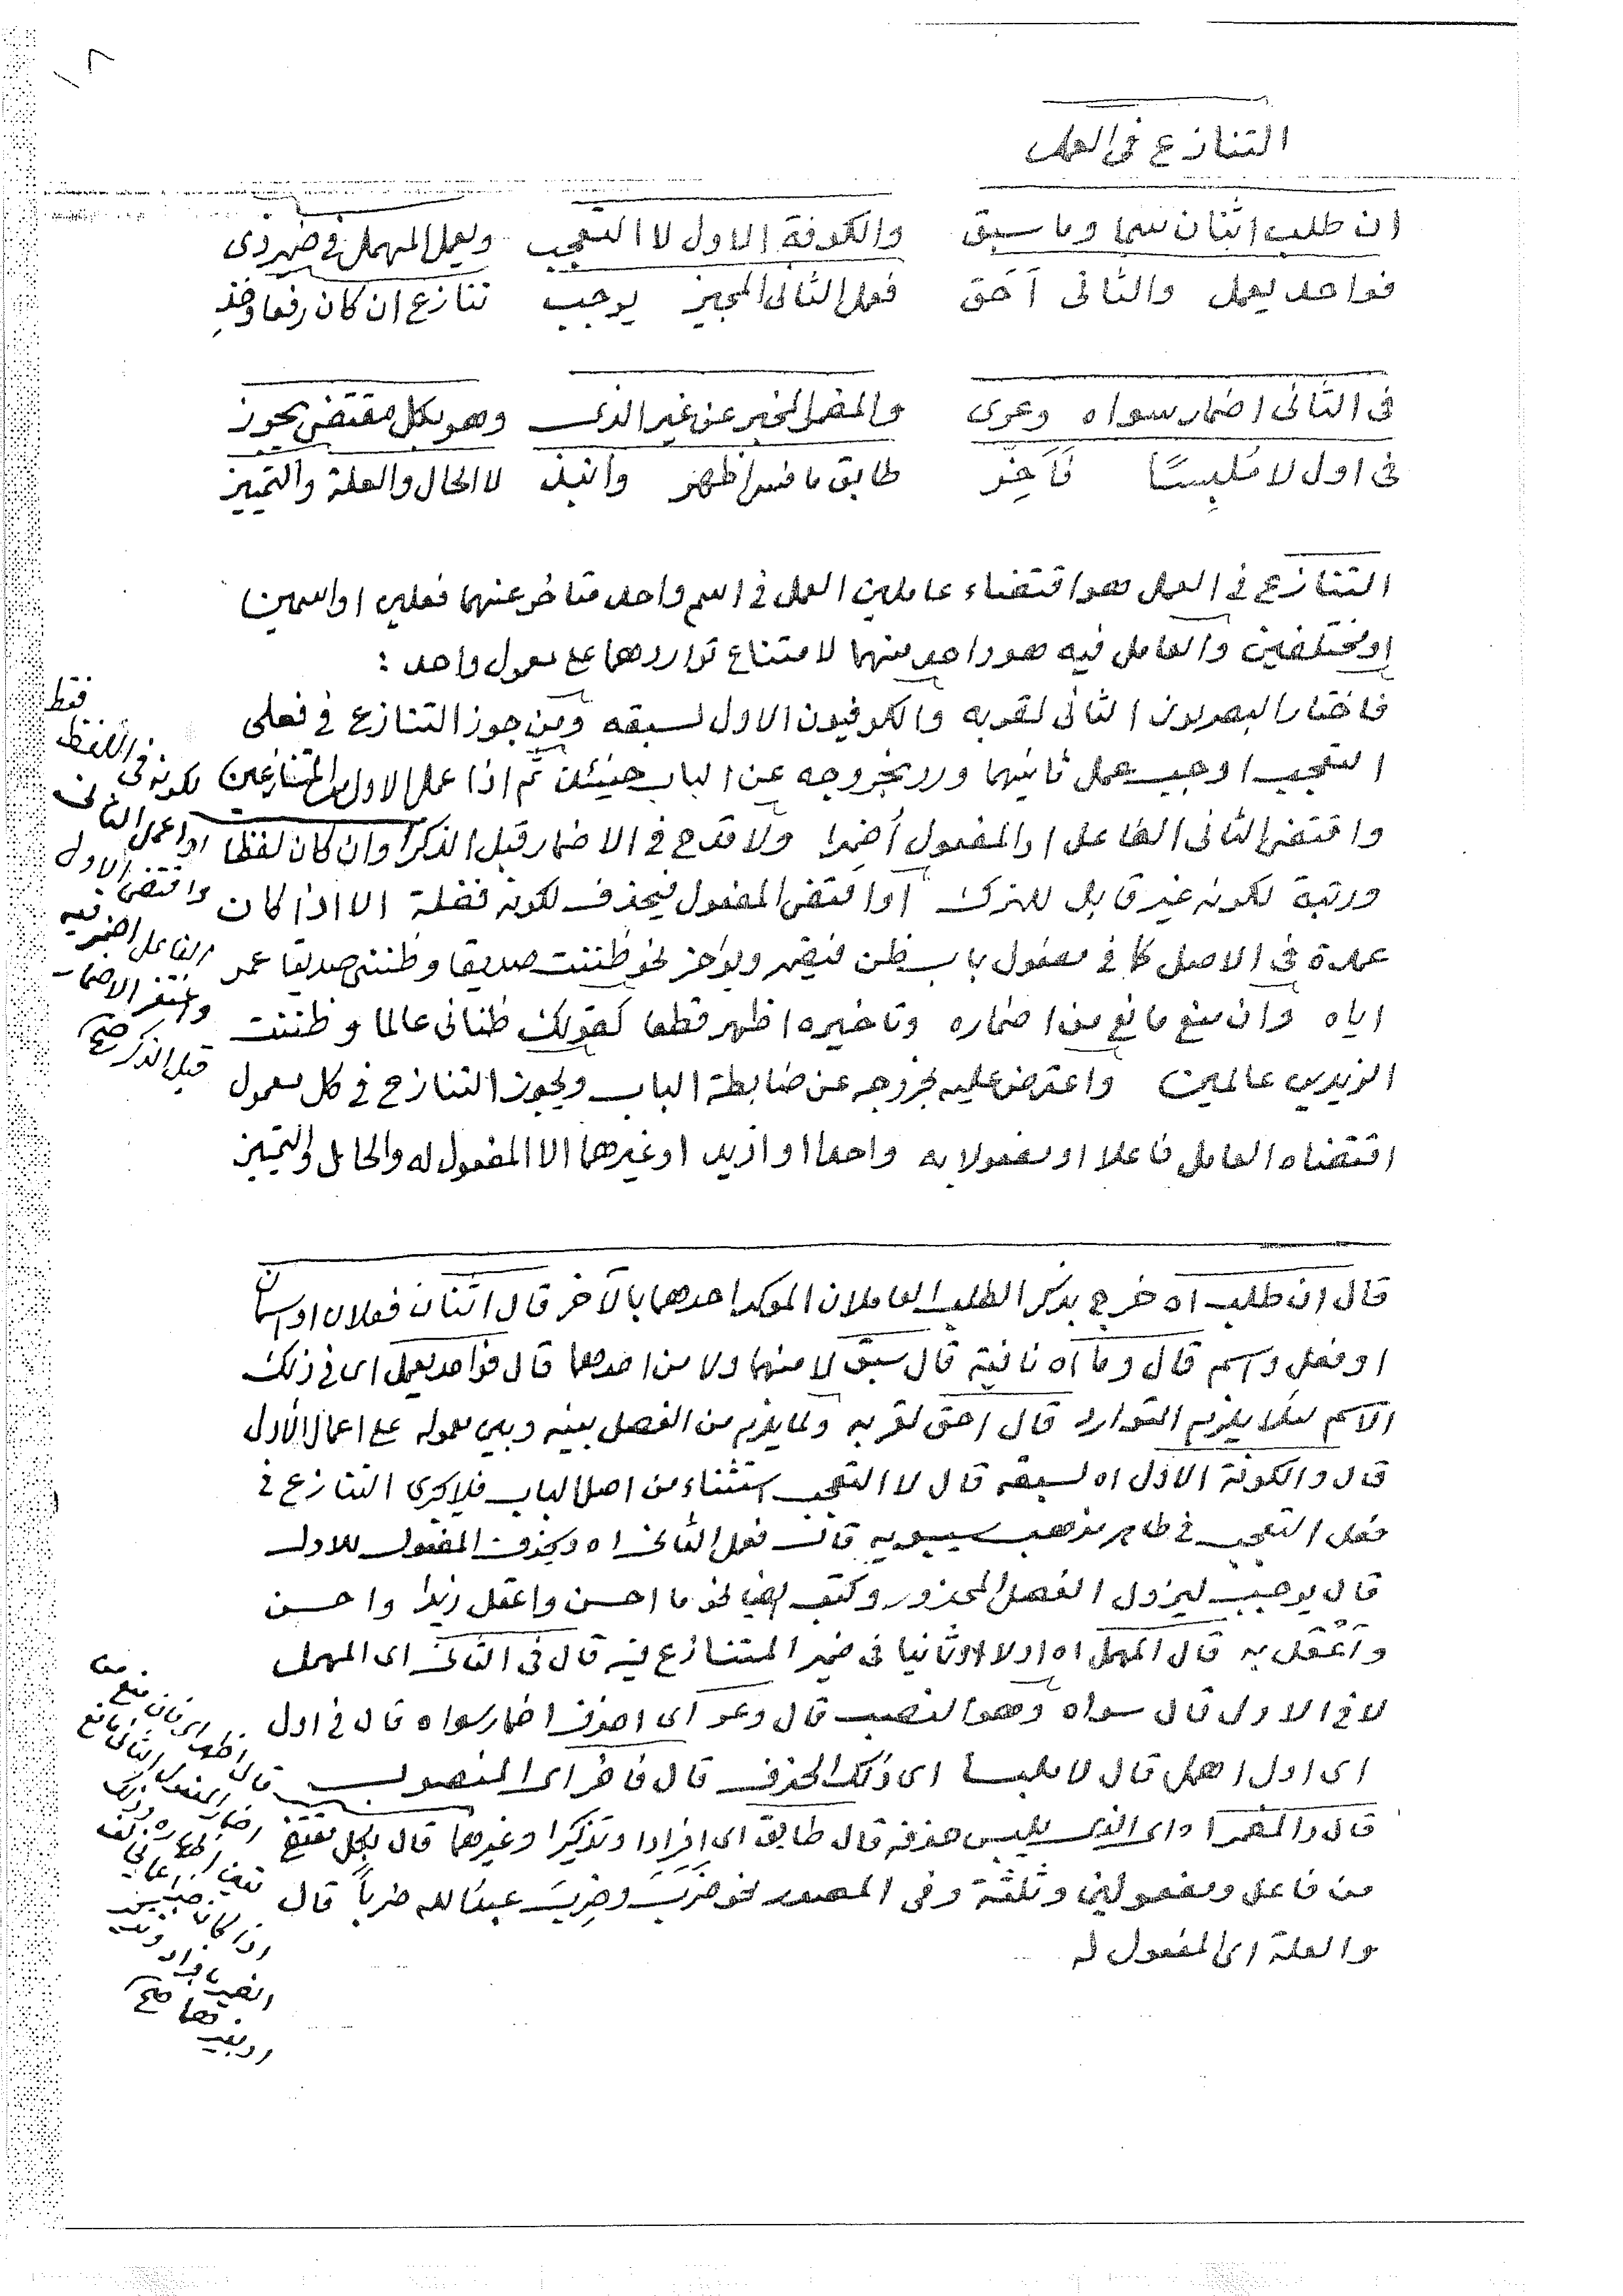 ١٨
التنازع فى العمل
ان طلب اثنان سما وما سبق والكوفة الاول لا التعجب ويعمل المهمل فى ضمير ذى
فواحد يعمل والثانى أحَق فعمل الثانى المجيز يوجب تنازع ان كان رفعا وخذِ
فى الثانى اضمار سواه وعرى والمضمر المخبر عن غير الذى وهو بكل مقتضى يجوز
فى اول لا مُلبِسًا فَأَخِّرِ طابق ما فسر اظهر وانبذ لا الحال والعلة والتمييز
التنازع فى العمل هو اقتضاء عاملين العمل فى اسم واحد متاخر عنهما فعلين او اسمين
او مختلفين والعامل فيه هو واحد منهما لامتناع تواردهما على معمول واحد :
فاختار البصريون الثانى لقربه والكوفيون الاول لسبقه ومن جوز التنازع فى فعلى
التعجب اوجب عمل ثانيهما ورد بخروجه عن الباب حينئذ ثم اذا عمل الاول من المتنازعين
واقتضى الثانى الفاعل او المفعول أضمرا ولا قدح فى الاضمار قبل الذكر لكونه فى اللفظ فقط
وان كان لفظا ورتبة لكونه غير قابل للترك او اقتضى المفعول فيحذف لكونه فضلة الا اذا كان
او اعمل الثانى واقتضى الاول الفاعل اضمر فيه واغتفر الاضمار قبل الذكر صح
عمدة فى الاصل كما فى مفعول باب ظن فيضمر ويؤخر نحو ظننت صديقا وظننى صديقا عمر
اياه وان منع مانع من اضماره وتاخيره اظهر قطعا كقولك ظنانى عالما وظننت
الزيدين عالمين واعترض عليه بخروجه عن ضابطة الباب ويجوز التنازع فى كل معمول
اقتضاه العامل فاعلا او مفعولا به واحدا او ازيد او غيرهما الا المفعول له والحال والتمييز
قال ان طلب اه خرج بذكر الطلب العاملان الموكد احدهما بالآخر قال اثنان فعلان او اسمان
او فعل واسم قال وما اه نافية قال سبق لا منهما ولا من احدهما قال فواحد يعمل اى فى ذلك
الاسم لئلا يلزم التوارد قال احق لقربه ولما يلزم من الفصل بينه وبين معموله على اعمال الاول
قال والكوفة الاول اه لسبقه قال لا التعجب استثناء من اصل الباب فلا يجرى التنازع فى
فعل التعجب فى ظاهر مذهب سيبويه قال فعمل الثانى اه ويحذف المفعول للاول
قال يوجب ليزول الفصل المحذور نحو ما احسن واعقل زيدا واحسن
وأعْقل به قال المهمل اه اولا او ثانيا فى ضمير المتنازع فيه قال فى الثانى اى المهمل
لا فى الاول قال سواه وهو النصب قال وعر اى احذف اضمار سواه قال فى اول
اى اول اهمل قال لا ملبسا اى ذلك الحذف قال فاخر اى المنصوب
قال والمضمر اه اى الذى يلبس حذفه قال طابق اى افرادا وتذكيرا وغيرهما قال بكل مقتضى
من فاعل ومفعولين وثلثة وفى المصدر نحو ضربتَ وضربتَ عبدَ الله ضرباً قال
والعلة اى المفعول له